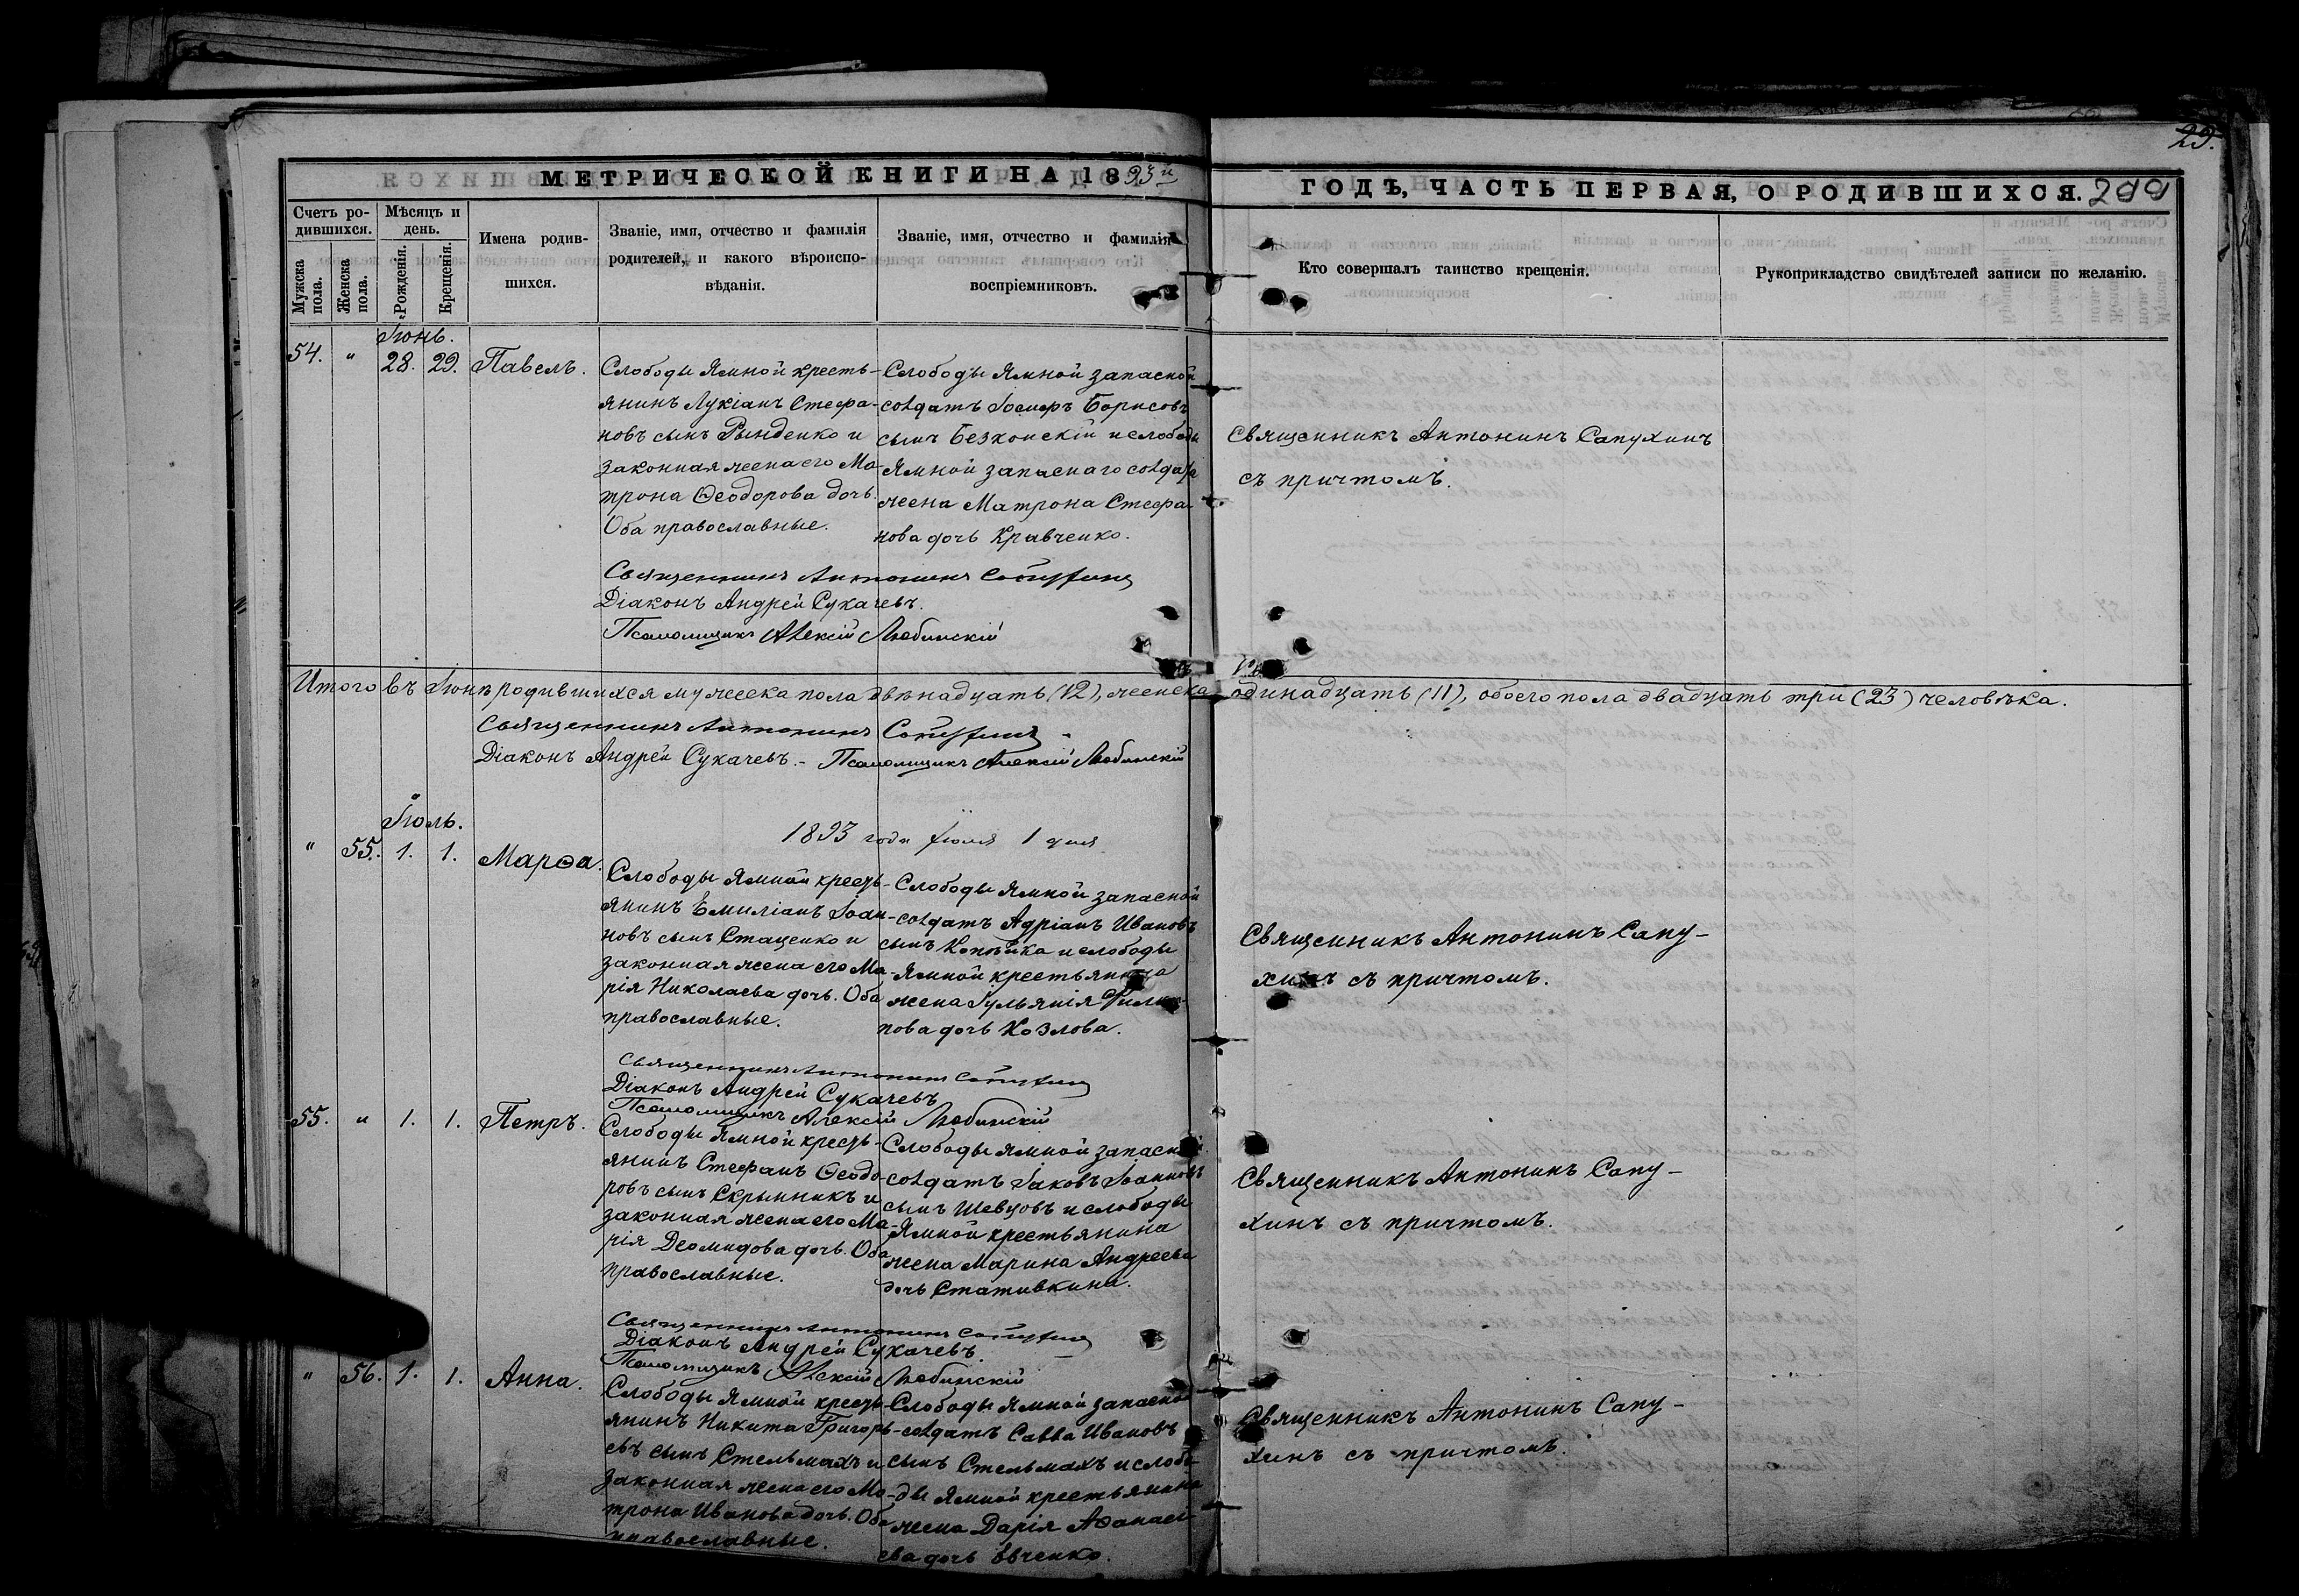 29.
МЕТРИЧЕСКОЙ КНИГИ НА 1893й
ГОДЪ, ЧАСТЬ ПЕРВАЯ, О РОДИВШИХСЯ. 200
Счетъ ро-
дившихся.
Мужска
пола.
Женска
пола.
Мѣсяцъ и
день.
Рожденія.
Крещенія.
Имена родив-
шихся.
Званіе, имя, отчество и фамилія
родителей, и какого вѣроиспо-
вѣданія.
Званіе, имя, отчество и фамилія
воспріемниковъ.
Кто совершалъ таинство крещенія.
Рукоприкладство свидѣтелей записи по желанію.
Іюнь.
54. " 28. 29. Павелъ.
Слободы Ямной кресть-
янинъ Лукіанъ Стефа-
новъ сынъ Рынденко и
законная жена его Ма-
трона Ѳеодорова дочь.
Оба православные.
Слободы Ямной запасной
солдатъ Іосифъ Борисовъ
сынъ Безконскій и слободы
Ямной запаснаго солдата
жена Матрона Стефа-
нова дочь Кравченко.
Священникъ Антонинъ Сапухинъ
съ причтомъ.
Священникъ Антонинъ Сапухинъ
Діаконъ Андрей Сукачевъ.
Псаломщикъ Алексій Любинскій
Итого въ Іюнѣ родившихся мужеска пола двѣнадцать (12), женска одинадцать (11), обоего пола двадцать три (23) человѣка.
Священникъ Антонинъ Сапухинъ
Діаконъ Андрей Сукачевъ. - Псаломщикъ Алексій Любинскій
Іюль.
1893 года Іюля 1 дня
" 55. 1. 1. Марѳа.
Слободы Ямной кресть-
янинъ Емиліанъ Іоан-
новъ сынъ Стаценко и
законная жена его Ма-
рія Николаева дочь. Оба
православные.
Слободы Ямной запасной
солдатъ Адріанъ Ивановъ
сынъ Копѣйка и слободы
Ямной крестьянина
жена Іульянія Филип-
пова дочь Козлова.
Священникъ Антонинъ Сапу-
хинъ съ причтомъ.
Священникъ Антонинъ Сапухинъ
Діаконъ Андрей Сукачевъ
Псаломщикъ Алексій Любинскій
55. " 1. 1. Петръ.
Слободы Ямной кресть-
янинъ Стефанъ Ѳеодо-
ровъ сынъ Скрынникъ и
законная жена его Ма-
рія Деомидова дочь. Оба
православные.
Слободы Ямной запасной
солдатъ Іаковъ Іоанновъ
сынъ Шевцовъ и слободы
Ямной крестьянина
жена Марина Андреева
дочь Стативкина.
Священникъ Антонинъ Сапу-
хинъ съ причтомъ.
Священникъ Антонинъ Сапухинъ
Діаконъ Андрей Сукачевъ.
Псаломщикъ Алексій Любинскій
" 56. 1. 1. Анна.
Слободы Ямной кресть-
янинъ Никита Григорь-
евъ сынъ Стельмахъ и
законная жена его Ма-
трона Иванова дочь. Оба
православные.
Слободы Ямной запасной
солдатъ Савва Ивановъ
сынъ Стельмахъ и слобо-
ды Ямной крестьянина
жена Дарія Аѳанась-
ева дочь Евченко.
Священникъ Антонинъ Сапу-
хинъ съ причтомъ.